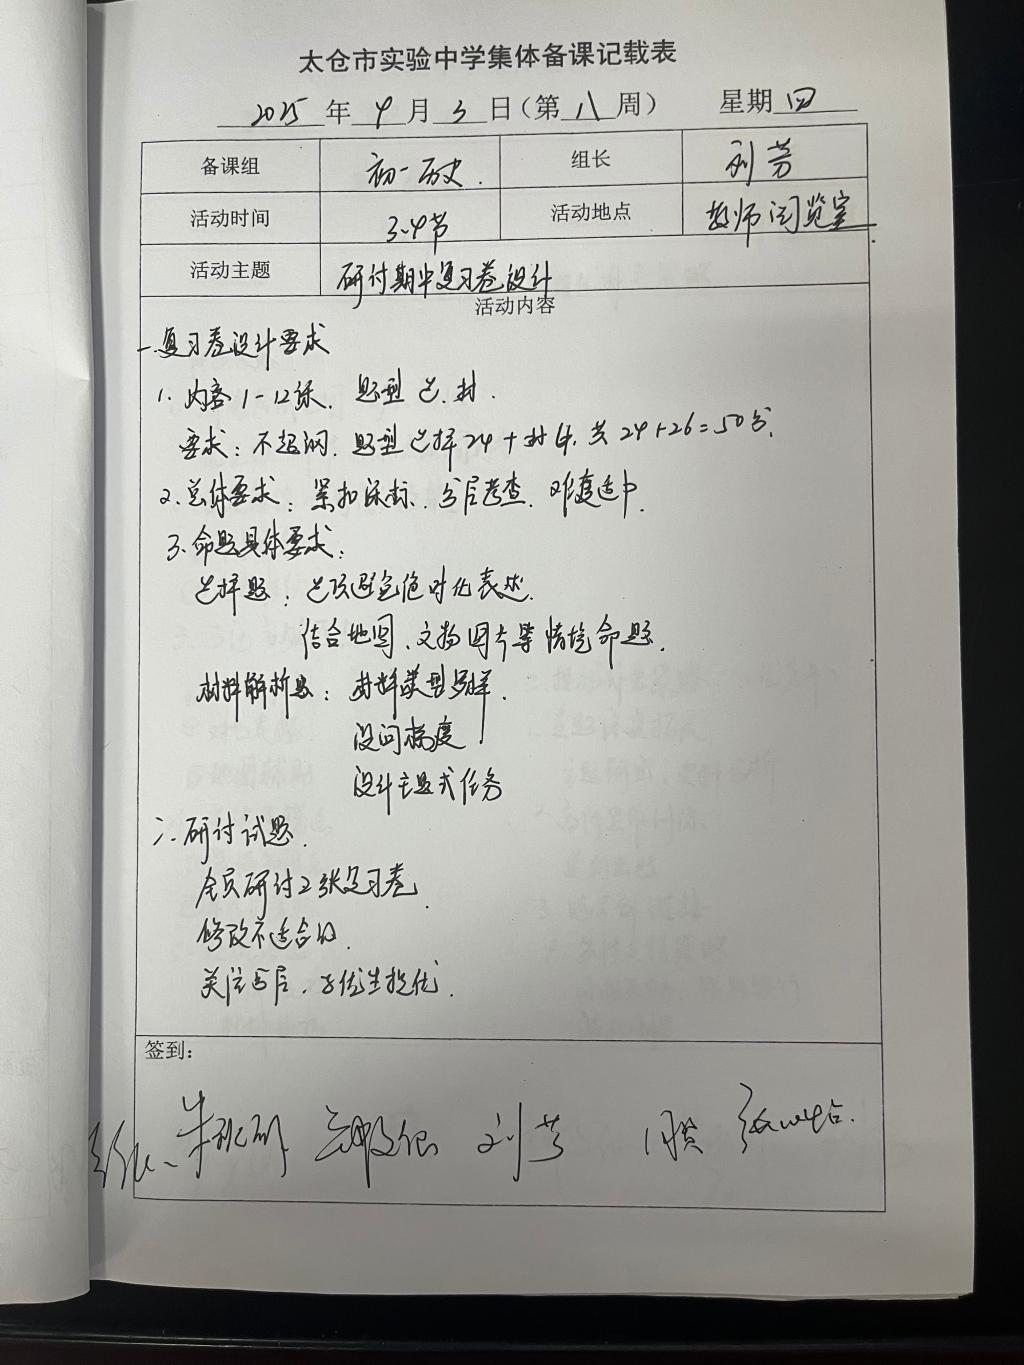 太仓市实验中学集体备课记载表
2025年4月3日(第八周) 星期四
备课组 初一历史. 组长 刘芳
活动时间 3-4节 活动地点 教师阅览室
活动主题 研讨期中复习卷设计
活动内容
一.复习卷设计要求
1. 内容1-12课. 题型 选.材.
要求:不超纲. 题型 选择24+材料. 共24+26=50分.
2.总体要求:紧扣课标. 分层考查. 难度适中.
3.命题具体要求:
选择题:选项避免绝对化表述.
结合地图、文物图片等情境命题.
材料解析题:材料类型多样.
设问梯度
设计主题式任务
二.研讨试题.
全员研讨2张复习卷.
修改不适合的.
关注分层.培优生提优.
签到:
刘芳